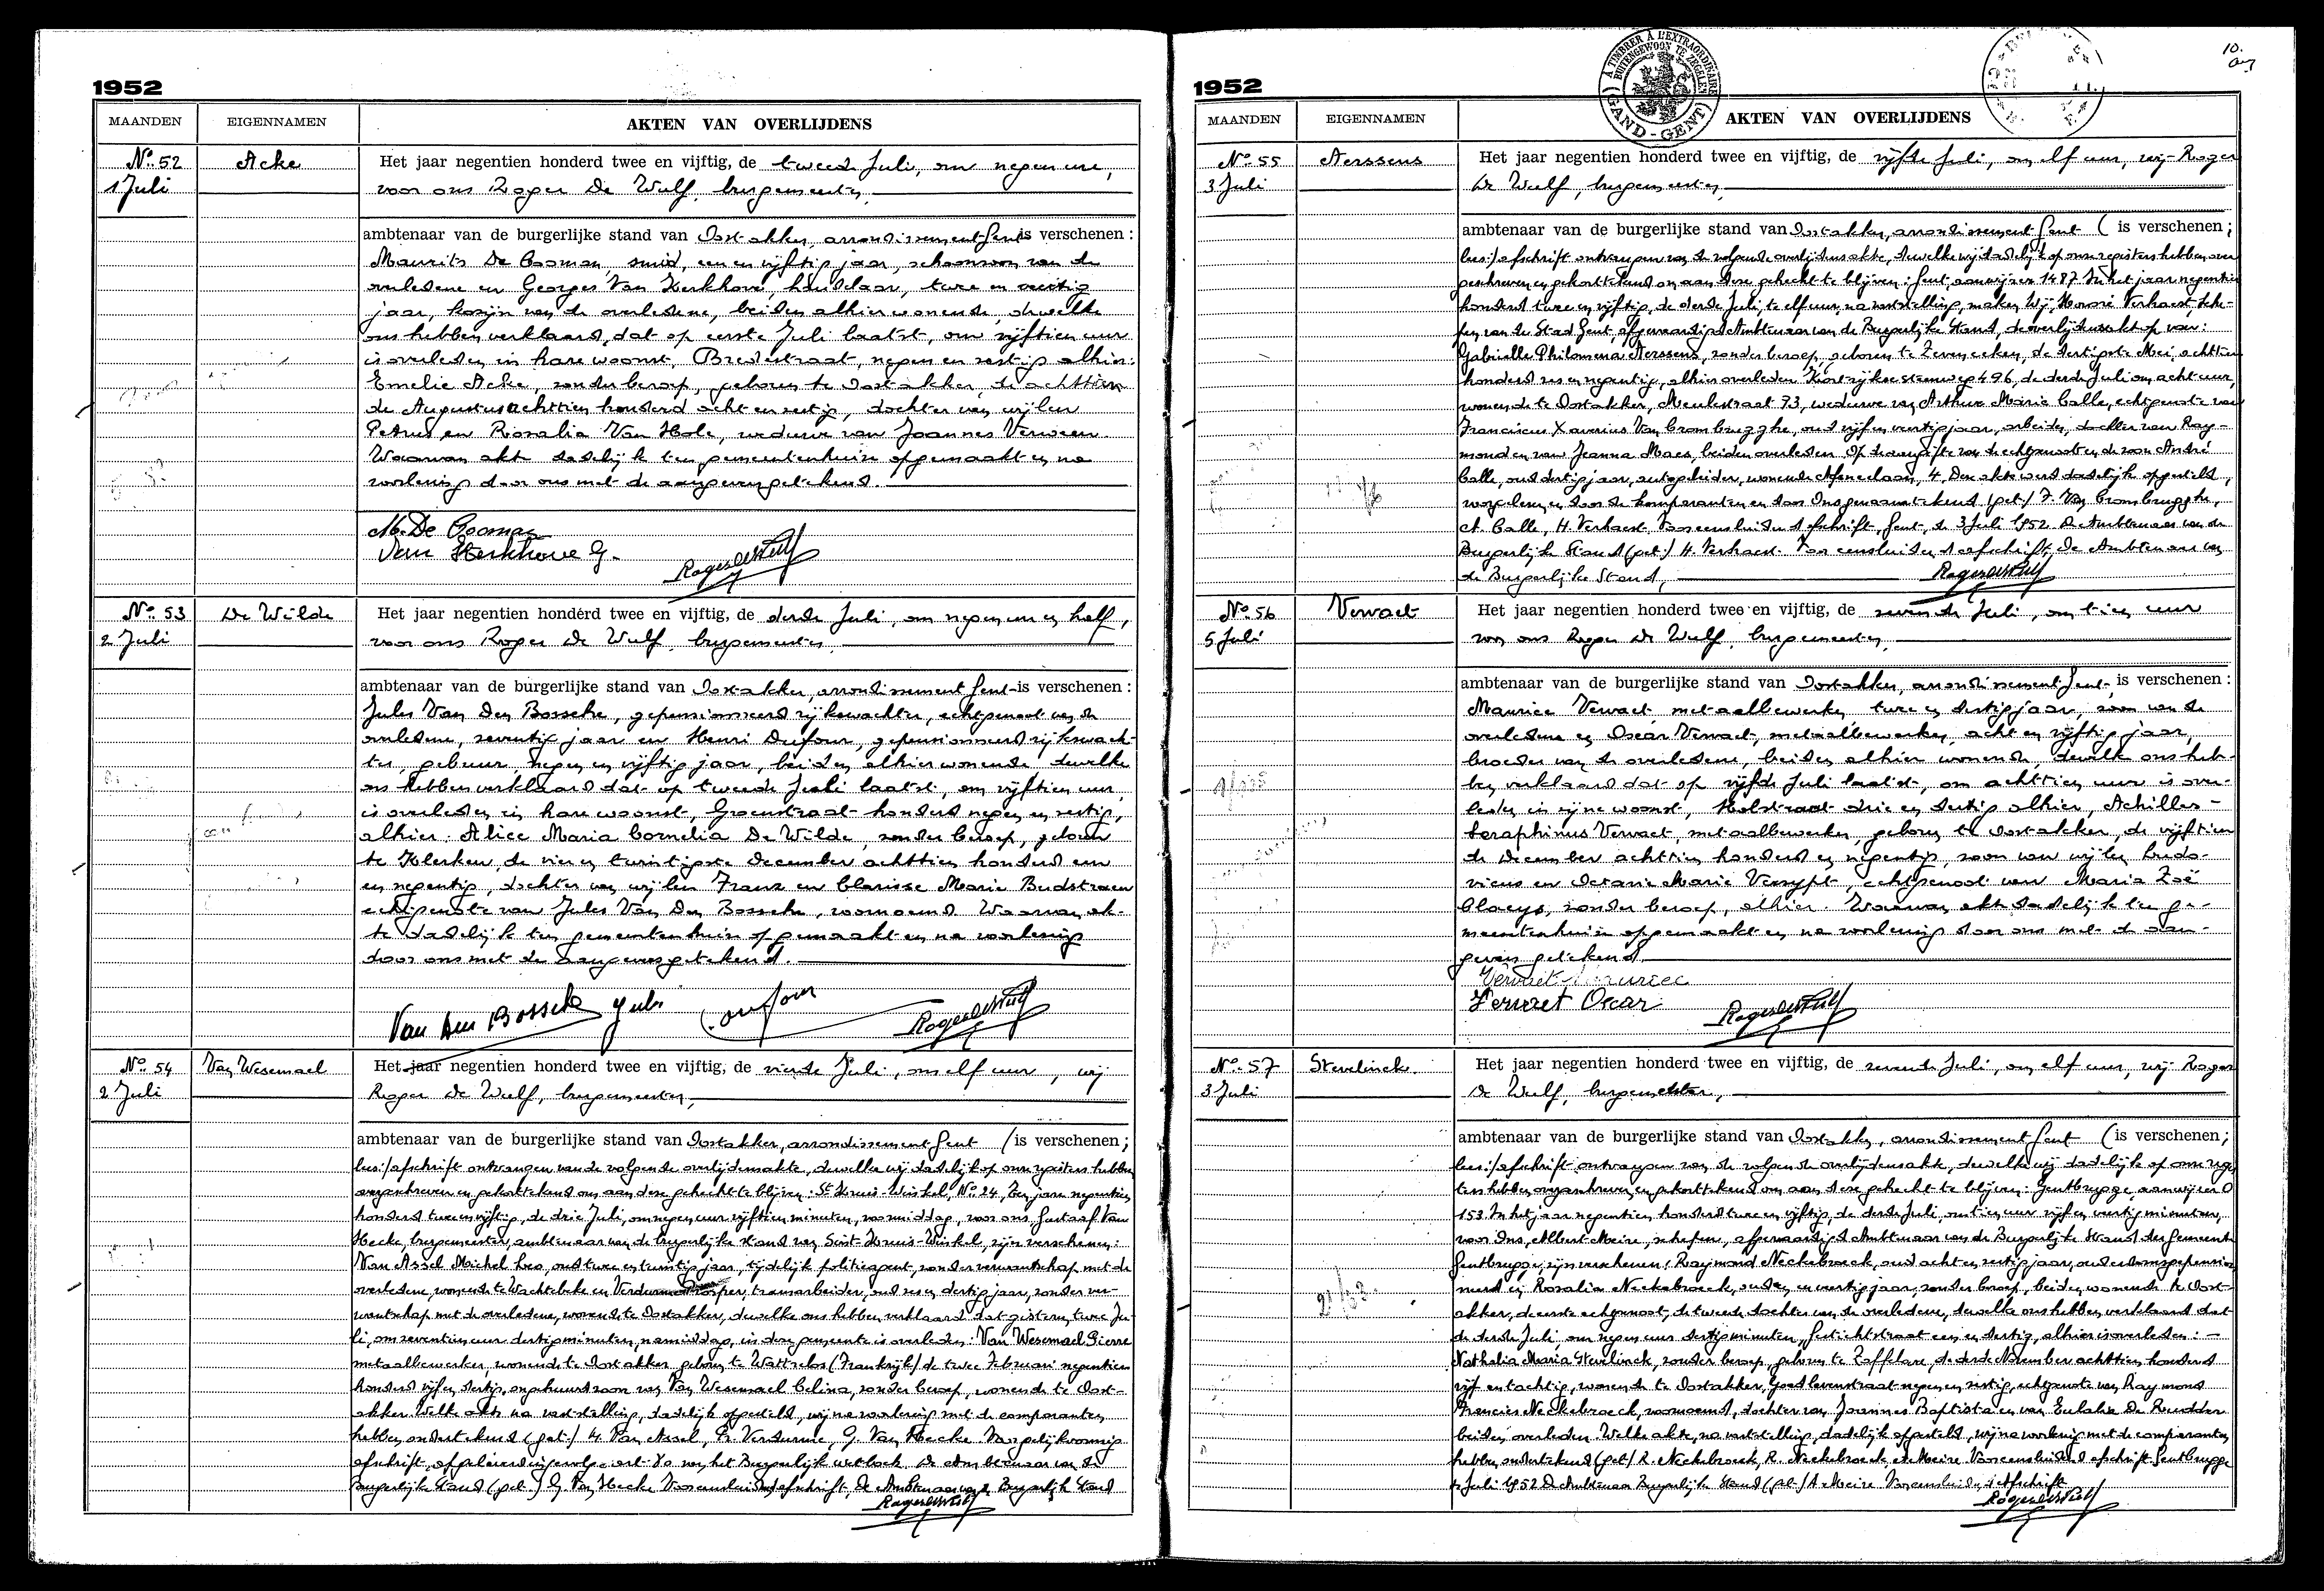 1952
MAANDEN EIGENNAMEN AKTEN VAN OVERLIJDENS
No. 52 Acke Het jaar negentien honderd twee en vijftig, de tweede Juli, om negen ure,
1 Juli voor ons Roger De Wulf, burgemeester,
ambtenaar van de burgerlijke stand van Oostakker, arrondissement Gent is verschenen :
Maurits De Cooman, smid, een en vijftig jaar, schoonzoon van de
overledene en Georges Van Kerkhove, handelaar, twee en veertig
jaar, kozijn van de overledene, beiden alhier wonende, dewelke
ons hebben verklaard, dat op eerste Juli laatst, om vijftien uur
is overleden in hare woonst, Bredestraat, negen en zestig alhier:
Emelie Acke, zonder beroep, geboren te Oostakker, de achttien
de Augustus achttien honderd acht en zestig, dochter van wijlen
Petrus en Rosalia Van Hole, weduwe van Joannes Verween.
Waarvan akt dadelijk ten gemeentenhuize opgemaakt en na
voorlezing door ons met de aangevers getekend.
M. De Cooman
Van Kerkhove G.
Roger De Wulf
No. 53 De Wilde Het jaar negentien honderd twee en vijftig, de derde Juli, om negen ure en half,
2 Juli voor ons Roger De Wulf, burgemeester,
ambtenaar van de burgerlijke stand van Oostakker, arrondissement Gent is verschenen :
Jules Van Den Bossche, gepensionneerd rijkswachter, echtgenoot van de
overledene, zeventig jaar en Henri Dufour, gepensionneerd rijkswach-
ter, gebuur, negen en vijftig jaar, beiden alhier wonende dewelke
ons hebben verklaard dat op tweede Juli laatst, om vijftien uur,
is overleden in hare woonst, Groenstraat honderd negen en zestig,
alhier: Alice Maria Cornelia De Wilde, zonder beroep, geboren
te Klerken, de vier en twintigste december achttien honderd een
en negentig, dochter van wijlen Franz en Clarisse Marie Budstraen
echtgenote van Jules Van Den Bossche, voornoemd. Waarvan ak-
te dadelijk ten gemeentenhuize opgemaakt en na voorlezing
door ons met de aangevers getekend.
Van den Bossche Jules
Roger De Wulf
No. 54 Van Wesemael Het jaar negentien honderd twee en vijftig, de vierde Juli, om elf uur, wij
2 Juli Roger De Wulf, burgemeester,
ambtenaar van de burgerlijke stand van Oostakker, arrondissement Gent (is verschenen;
lees:) afschrift ontvangen van de volgende overlijdensakte, dewelke wij dadelijk op onze registers hebben
overgeschreven en gekorttekend om aan deze gehecht te blijven: St Kruis-Winkel, No. 24, Ten jare negentien
honderd twee en vijftig, de drie Juli, om negen uur vijftien minuten, voormiddag, voor ons, Gustaaf Van
Hecke, burgemeester, ambtenaar van de burgerlijke stand van Sint-Kruis-Winkel, zijn verschenen:
Van Assel Michel Leo, oud twee en twintig jaar, tijdelijk politieagent, zonder verwantschap met de
overledene, wonende te Wachtebeke en Verdurme Prosper, tramarbeider, oud zes en dertig jaar, zonder ver-
wantschap met de overledene, wonende te Oostakker, dewelke ons hebben verklaard dat gisteren twee Ju-
li, om zeventien uur dertig minuten, namiddag, in deze gemeente is overleden: Van Wesemael Pierre
metaalbewerker, wonende te Oostakker geboren te Wattrelos (Frankrijk) de twee Februari negentien
honderd vijf en dertig, ongehuwd zoon van Van Wesemael Celina, zonder beroep, wonende te Oost-
akker. Welke akte na vaststelling, dadelijk opgesteld, wij na voorlezing met de comparanten
hebben ondertekend (get.) M. Van Assel, Pr. Verdurme, G. Van Hecke Voor gelijkvormig
afschrift, afgeleverd ingevolge art. 80 van het Burgerlijk wetboek. De Ambtenaar van de
Burgerlijke Stand (get.) G. Van Hecke Voor eensluidend afschrift, De Ambtenaar van de Burgerlijke Stand
Roger De Wulf
1952
A TIMBRER A L'EXTRAORDINAIRE
BUITENGEWOON TE ZEGELEN
GAND-GENT
10.
MAANDEN EIGENNAMEN AKTEN VAN OVERLIJDENS
No. 55 Aerssens Het jaar negentien honderd twee en vijftig, de vijfde Juli, om elf uur, wij Roger
3 Juli De Wulf, burgemeester,
ambtenaar van de burgerlijke stand van Oostakker, arrondissement Gent (is verschenen;
lees:) afschrift ontvangen van de volgende overlijdensakte, dewelke wij dadelijk op onze registers hebben over
geschreven en gekorttekend om aan deze gehecht te blijven: Gent, aanwijzer 1487 In het jaar negentien
honderd twee en vijftig, de derde Juli, te elf uur, na vaststelling, maken Wij, Henri Verhaest, Sche-
pen van de Stad Gent, afgevaardigd Ambtenaar van de Burgerlijke Stand, de overlijdensakt op van:
Gabrielle Philomena Aerssens, zonder beroep, geboren te Zeveneeken, de dertigste Mei achttien
honderd zes en negentig, alhier overleden Kortrijkse steenweg 496, de derde Juli om acht uur,
wonende te Oostakker, Meulestraat 73, weduwe van Arthur Marie Calle, echtgenote van
Franciscus Xaverius Van Crombrugghe, oud vijf en veertig jaar, arbeider, dochter van Ray-
mond en van Jeanna Maes, beiden overleden. Op de aangifte van de echtgenoot en de zoon André
Calle, oud dertig jaar, autogeleider, wonende Afsneelaan, 4. Den akte werd dadelijk opgesteld,
voorgelezen en door de komparanten en door Ons genaamtekend (get.) F. Van Crombrugghe,
A. Calle, H. Verhaest, Voor eensluidend afschrift, Gent, de 3 Juli 1952. De Ambtenaar van de
Burgerlijke Stand (get.) H. Verhaest. Voor eensluidend afschrift, De Ambtenaar van
de Burgerlijke Stand,
Roger De Wulf
No. 56 Vervaet Het jaar negentien honderd twee en vijftig, de zevende Juli, om tien uur
5 Juli voor ons Roger De Wulf, burgemeester,
ambtenaar van de burgerlijke stand van Oostakker, arrondissement Gent, is verschenen :
Maurice Vervaet, metaalbewerker, twee en dertig jaar, zoon van de
overledene en Oscar Vervaet, metaalbewerker, acht en vijftig jaar,
broeder van de overledene, beiden alhier wonende, dewelke ons heb-
ben verklaard dat op vijfde Juli laatst, om achttien uur is over-
leden in zijne woonst, Holstraat drie en dertig alhier, Achilles-
Seraphinus Vervaet, metaalbewerker, geboren te Oostakker, de vijftien
de december achttien honderd en negentig, zoon van wijlen Ludo-
vicus en Octavie Marie Versypt, echtgenoot van Maria Zoë
Claeys, zonder beroep, alhier. Waarvan akte dadelijk ten ge-
meentenhuize opgemaakt en na voorlezing door ons met de aan-
gevers getekend.
Vervaet Maurice
Vervaet Oscar
Roger De Wulf
No. 57 Stevelinck Het jaar negentien honderd twee en vijftig, de zevende Juli, om elf uur, wij Roger
3 Juli De Wulf, burgemeester,
ambtenaar van de burgerlijke stand van Oostakker, arrondissement Gent (is verschenen;
lees:) afschrift ontvangen van de volgende overlijdensakte, dewelke wij dadelijk op onze regis
ters hebben overgeschreven en gekorttekend om aan deze gehecht te blijven: Gentbrugge, aanwijzer
153 In het jaar negentien honderd twee en vijftig, de derde Juli, om tien uur vijf en veertig minuten,
voor Ons, Albert Meire, schepen, afgevaardigd Ambtenaar van de Burgerlijke Stand der Gemeente
Gentbrugge, zijn verschenen: Raymond Neckebroeck, oud acht en zestig jaar, ouderdomsgepension
neerd en Rosalia Neckebroeck, en veertig jaar, zonder beroep, beiden wonende te Oost-
akker, de eerste echtgenoot, de tweede dochter van de overledene, dewelke ons hebben verklaard dat
de derde Juli, om negen uur dertig minuten, Gestichtstraat een en dertig, alhier is overleden: -
Nathalia Maria Stevelinck, zonder beroep, geboren te Zaffelare, de derde November achttien honderd
vijf en tachtig, wonende te Oostakker, Goedlevenstraat negen en zestig, echtgenote van Raymond
Francies Neckebroeck, voornoemd, dochter van Joannes Baptista en van Eulalie De Rudder
beiden overleden. Welke akte, na vaststelling, dadelijk opgesteld, wij na voorlezing met de comparanten
hebben ondertekend (get.) R. Neckebroeck, R. Neckebroeck, A. Meire Voor eensluidend afschrift Gentbrugge
Juli 1952 De Ambtenaar Burgerlijke Stand (get.) A. Meire Voor eensluidend afschrift
Roger De Wulf